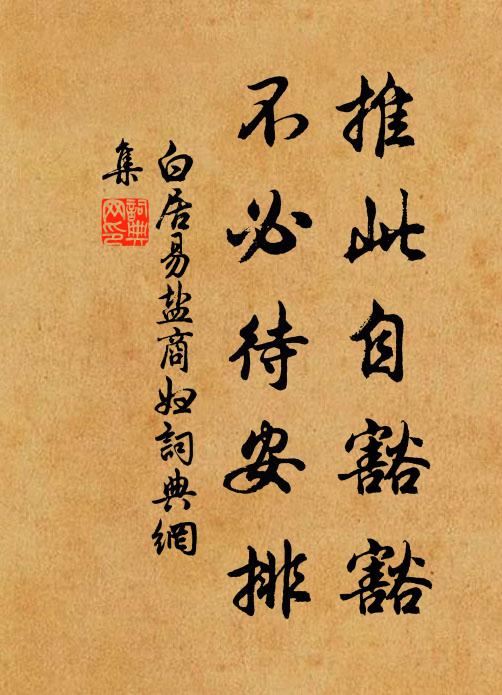 推此自豁豁
不必待安排
白居易盐商妇詞典網
集
詞典
网印